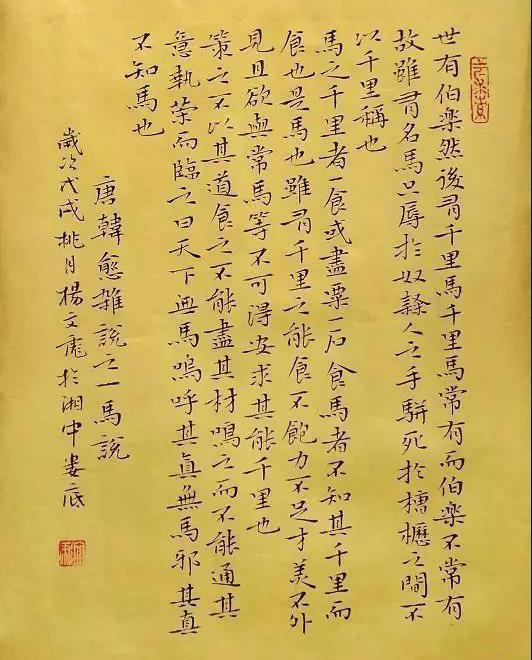 世有伯樂然後有千里馬千里馬常有而伯樂不常有
故雖有名馬只辱於奴隸人之手駢死於槽櫪之間不
以千里稱也
馬之千里者一食或盡粟一石食馬者不知其千里而
食也是馬也雖有千里之能食不飽力不足才美不外
見且欲與常馬等不可得安求其能千里也
策之不以其道食之不能盡其材鳴之而不能通其
意執策而臨之曰天下無馬嗚呼其真無馬邪其真
不知馬也
唐韓愈雜說之一馬說
歲次戊戌桃月楊文彪於湘中婁底